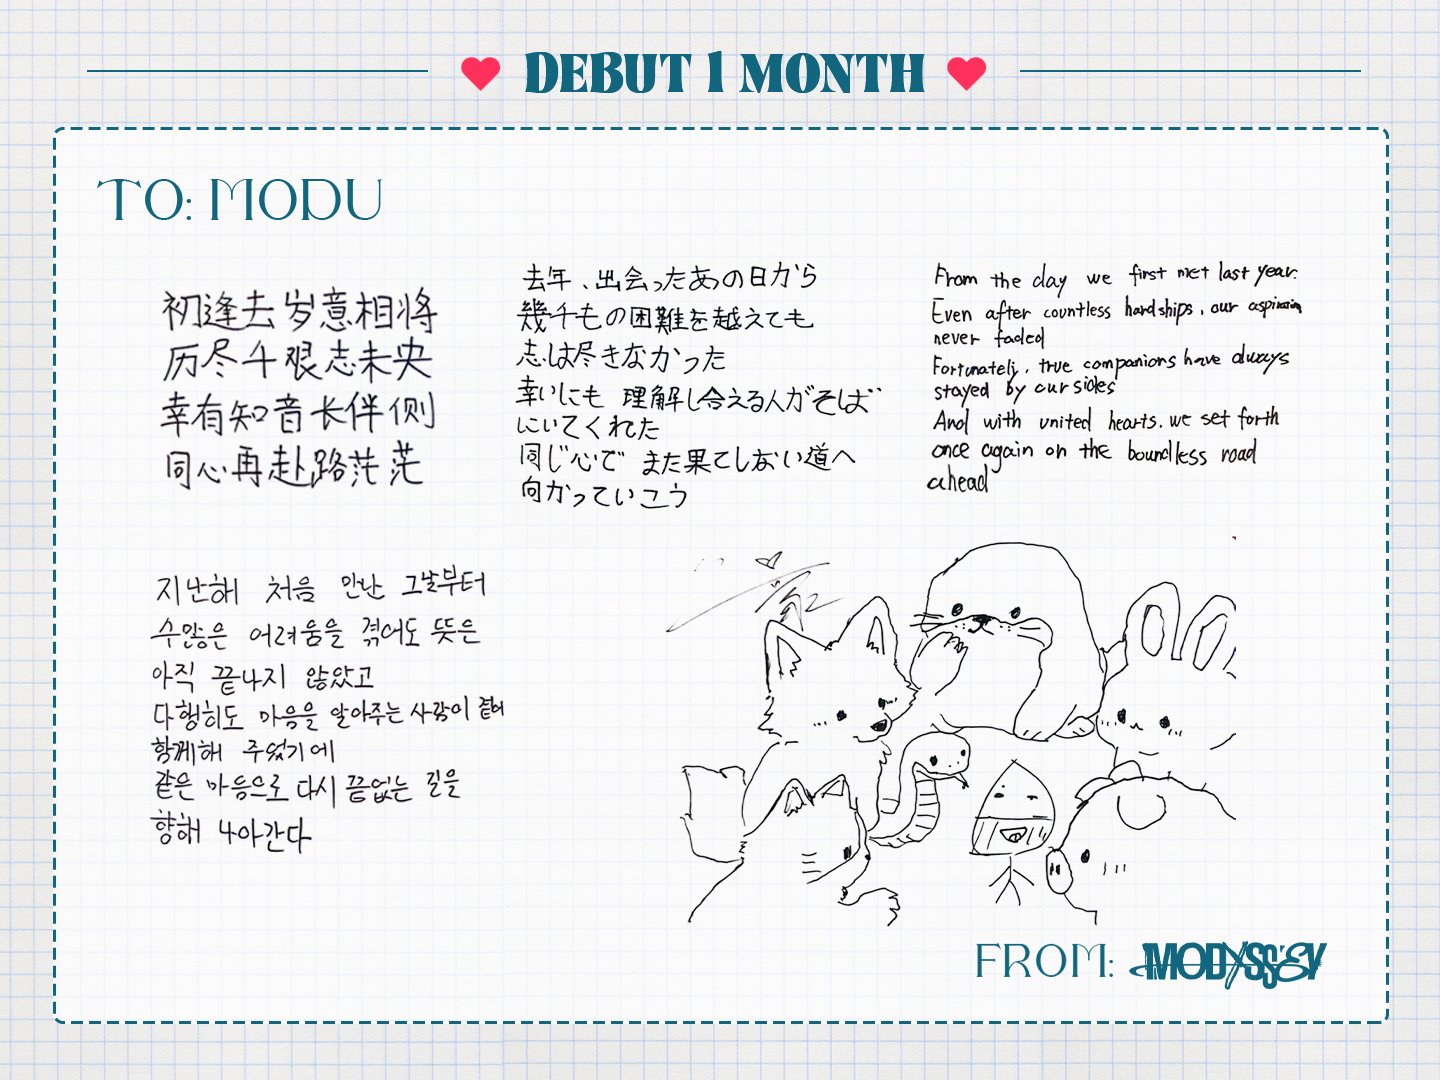 DEBUT 1 MONTH
TO: MODU
初逢去岁意相将
历尽千艰志未央
幸有知音长伴侧
同心再赴路茫茫
去年、出会ったあの日から
幾千もの困難を越えても
志は尽きなかった
幸いにも 理解し合える人がそば
にいてくれた
同じ心で また果てしない道へ
向かっていこう
From the day we first met last year.
Even after countless hardships, our aspiration
never faded
Fortunately, true companions have always
stayed by our sides
And with united hearts, we set forth
once again on the boundless road
ahead
지난해 처음 만난 그날부터
수많은 어려움을 겪어도 뜻은
아직 끝나지 않았고
다행히도 마음을 알아주는 사람이 곁에
함께해 주었기에
같은 마음으로 다시 끝없는 길을
향해 나아간다
FROM: MODYSSEY